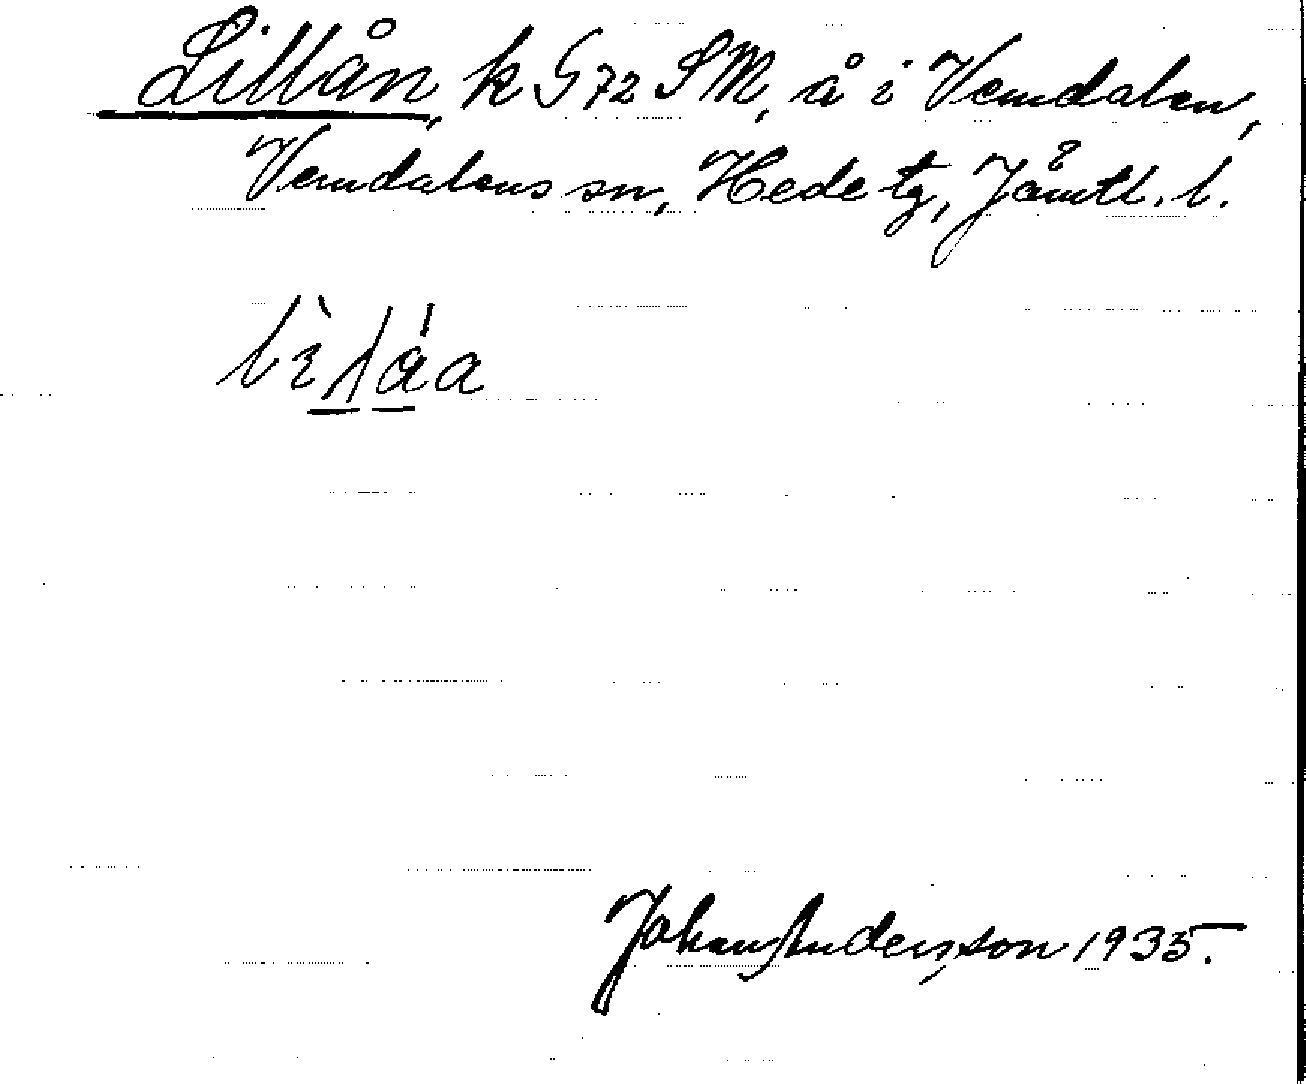 Lillån, k G72 SM, å i Vemdalen,
Vemdalens sn, Hede tg, Jämtl. l.
Johan Andersson 1935.